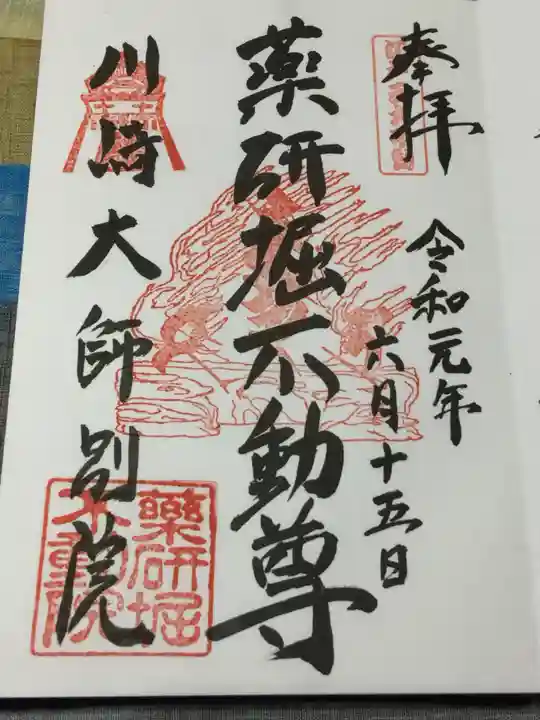 奉拝
令和元年
六月十五日
薬研堀不動尊
川崎大師別院
薬研堀
不動院